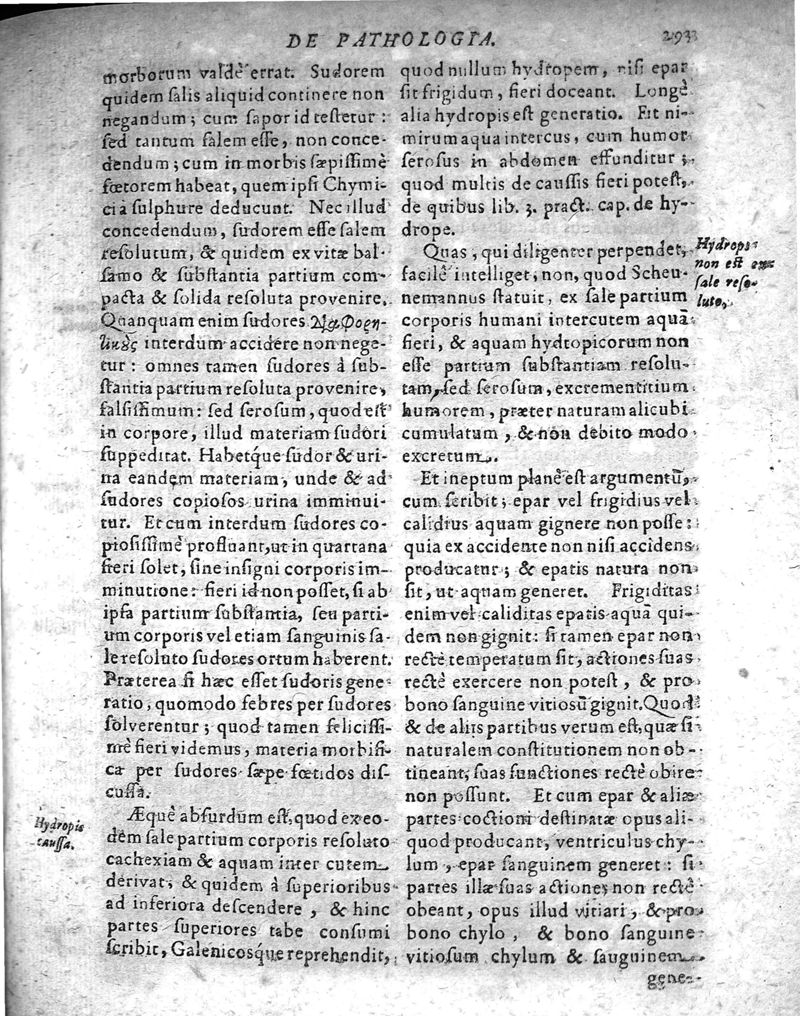 DE PATHOLOGIA. 293
morborum valdè errat. Sudorem
quidem salis aliquid continere non
negandum; cum sapor id testetur:
sed tantum salem esse, non conce-
dendum; cum in morbis sæpissimè
fœtorem habeat, quem ipsi Chymi-
ci à sulphure deducunt. Nec illud
concedendum, sudorem esse salem
resolutum, & quidem ex vitæ bal-
samo & substantia partium com-
pacta & solida resoluta provenire.
Quanquam enim sudores
interdum accidere non nege-
tur: omnes tamen sudores à sub-
stantia partium resoluta provenire,
falsissimum: sed serosum, quod est
in corpore, illud materiam sudori
suppeditat. Habetq́ue sudor & uri-
na eandem materiam, unde & ad
sudores copiosos urina imminui-
tur. Et cum interdum sudores co-
piosissimè profluant, ut in quartana
fieri solet, sine insigni corporis im-
minutione: fieri id non posset, si ab
ipsa partium substantia, seu parti-
um corporis vel etiam sanguinis sa-
le resoluto sudores ortum haberent.
Præterea si hæc esset sudoris gene-
ratio, quomodo febres per sudores
solverentur; quod tamen felicissi-
mè fieri videmus, materia morbifi-
ca per sudores sæpe fœtidos dis-
cussa.
Hydropis
caussa.
Æquè absurdum est, quod ex eo-
dem sale partium corporis resoluto
cachexiam & aquam inter cutem
derivat; & quidem à superioribus
ad inferiora descendere, & hinc
partes superiores tabe consumi
scribit, Galenicosq́ue reprehendit,
quod nullum hydropem, nisi epar
sit frigidum, fieri doceant. Longè
alia hydropis est generatio. Fit ni-
mirum aqua intercus, cum humor
serosus in abdomen effunditur;
quod multis de caussis fieri potest,
de quibus lib. 3. pract. cap. de hy-
drope.
Hydrops
non est ex
sale reso-
luto.
Quas, qui diligenter perpendet,
facilè intelliget, non, quod Scheu-
nemannus statuit, ex sale partium
corporis humani intercutem aquã
fieri, & aquam hydropicorum non
esse partium substantiam resolu-
tam, sed serosum, excrementitium
humorem, præter naturam alicubi
cumulatum, & non debito modo
excretum.
Et ineptum planè est argumentũ,
cum scribit; epar vel frigidius vel
calidius aquam gignere non posse:
quia ex accidente non nisi accidens
producatur; & epatis natura non
sit, ut aquam generet. Frigiditas
enim vel caliditas epatis aquã qui-
dem non gignit: si tamen epar non
rectè temperatum sit, actiones suas
rectè exercere non potest, & pro
bono sanguine vitiosũ gignit. Quod
& de aliis partibus verum est, quæ si
naturalem constitutionem non ob-
tineant, suas functiones rectè obire
non possunt. Et cum epar & aliæ
partes coctioni destinatæ opus ali-
quod producant, ventriculus chy-
lum, epar sanguinem generet: si
partes illæ suas actiones non rectè
obeant, opus illud vitiari, & pro
bono chylo, & bono sanguine
vitiosum chylum & sanguinem
gene-